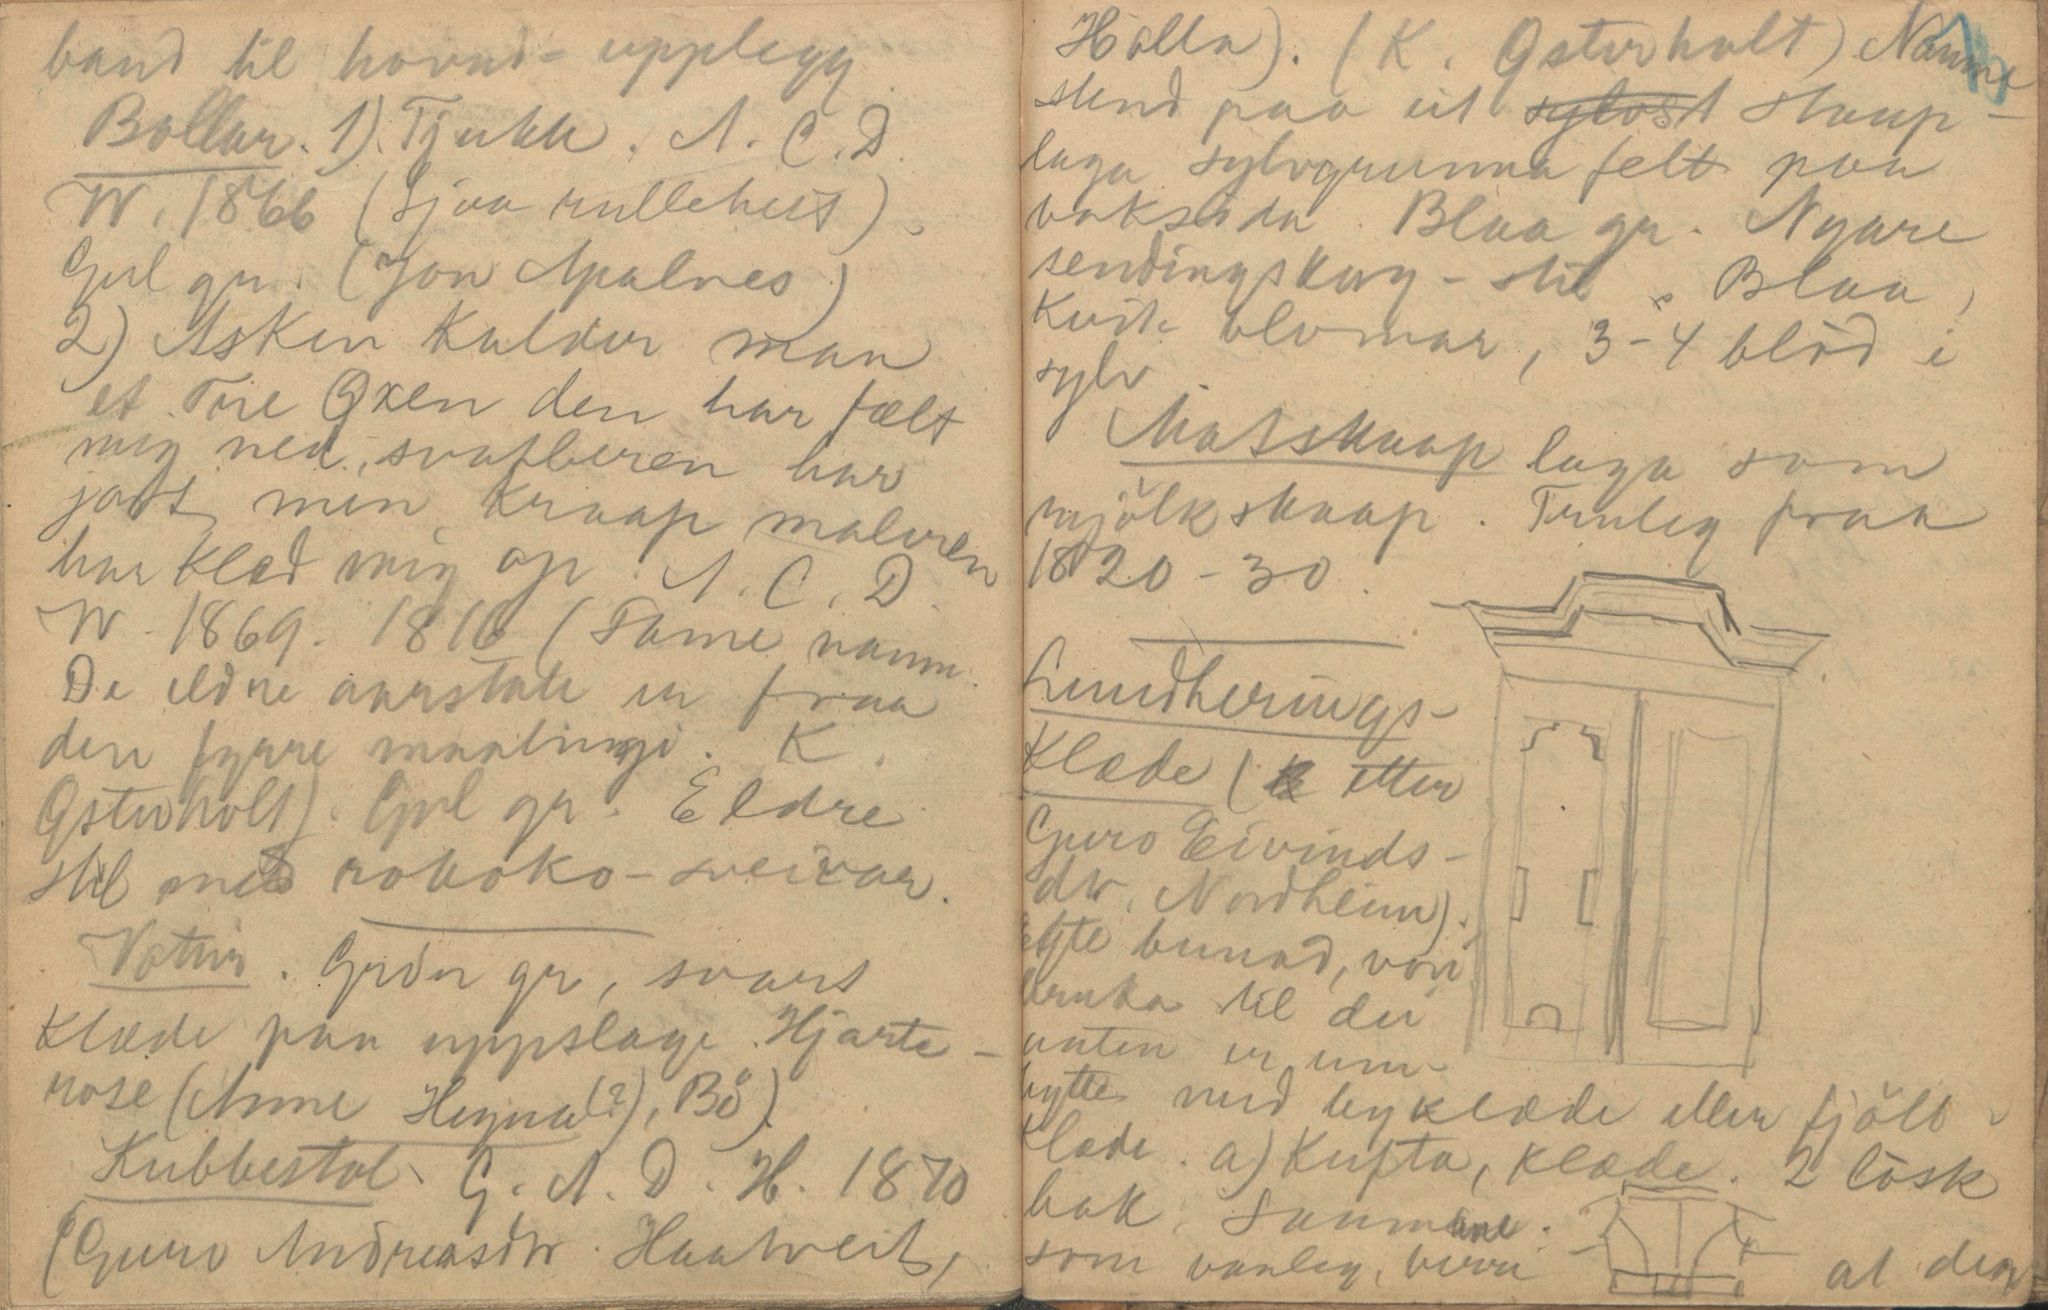 band til hovud-upplegg
Bollar. 1) Tjukk. A. C. D.
W. 1866 (Sjaa rulleheit).
Gul gr. (Jon Apalnes)
2) Asken kalder man
et Tre Oxen den har fælt
mig ned, svafberen har
jort min kraap maleren
har klæd mig op. A. C. D.
W. 1869. 1816 (Same namn.
De eldre aarstale er fraa
den fyrre maalingi. K.
Østerholt). Gul gr. Eldre
stil med rokoko-sveivar.
Vottar. Grön gr, svart
klæde paa uppslage. Hjarte-
rose (Anne Hegna(?), Bö)
Kubbestol. G. A. D. H. 1870
(Guro Andreasdtr. Haatveit,
Holla). (K. Østerholt) Namne
stend paa eit sylvst skaap-
laga sylvgrunna felt paa
baksida. Blaa gr. Nyare
sendingskorg-stil. Blaa,
kvite blomar, 3-4 blöd i
sylv.
Matskaap laga som
mjölkskaap. Truleg fraa
1820-30.
Lundherings-
klæde (etter
Guro Eivinds-
dtr. Nordheim).
Ekte bunad, vori
bruka til dei
anten er um-
bytte med byklæde eller fjölt-
klæde. a) Kufta, klæde. 2 lösk
bak. Saumane
som vanleg, berre at den